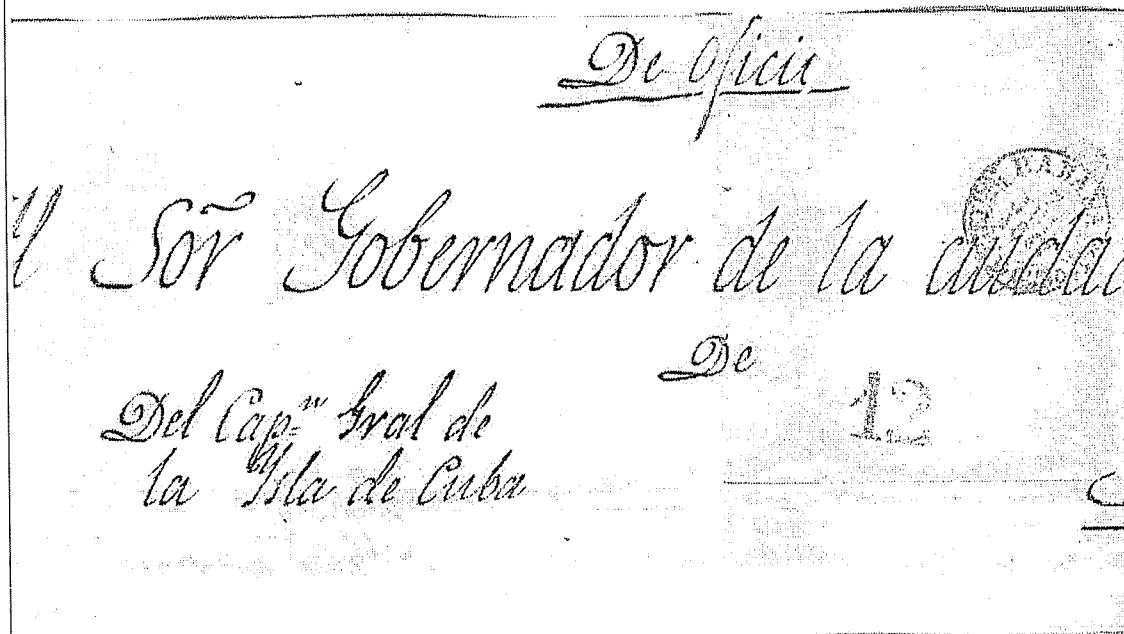 De Oficio
Al Sõr Gobernador de la ciudad
De
12
Del Cap.ⁿ Gral de
la Ysla de Cuba